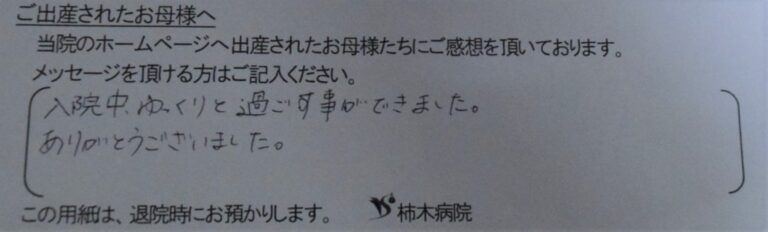 ご出産されたお母様へ
当院のホームページへ出産されたお母様たちにご感想を頂いております。
メッセージを頂ける方はご記入ください。
入院中、ゆっくりと過ごす事ができました。
ありがとうございました。
この用紙は、退院時にお預かりします。 柿木病院